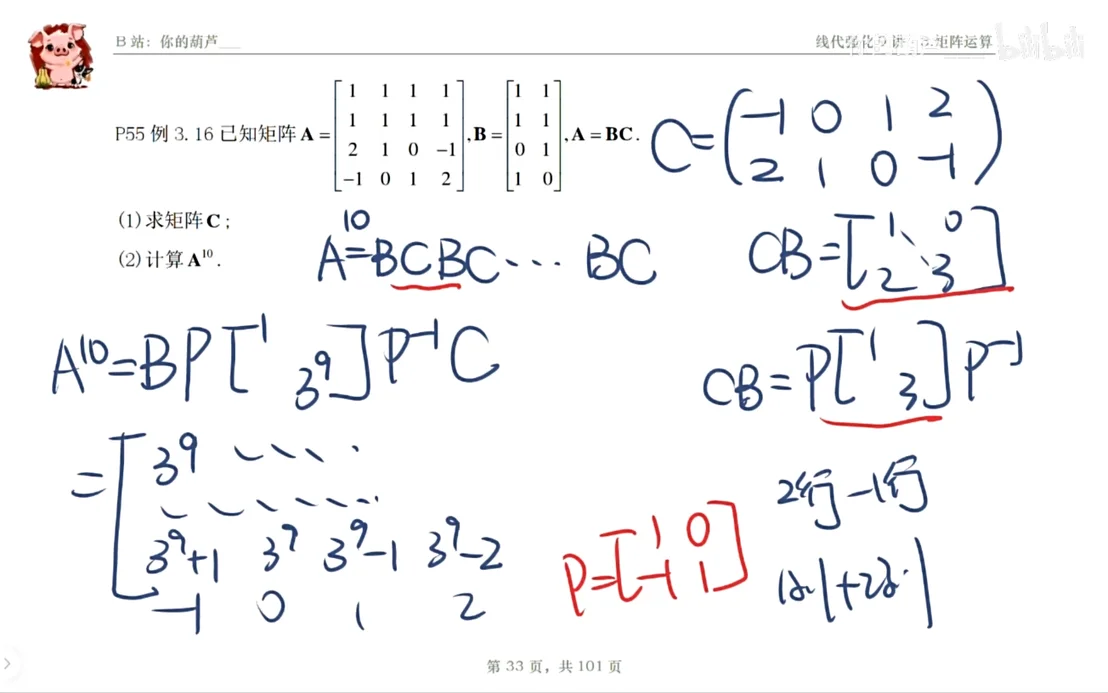 B 站：你的葫芦___
线代强化 矩阵运算
bilibili
P55 例 3.16 已知矩阵 A = [1 1 1 1; 1 1 1 1; 2 1 0 -1; -1 0 1 2], B = [1 1; 1 1; 0 1; 1 0], A = BC.
C = (-1 0 1 2; 2 1 0 -1)
(1) 求矩阵 C；
(2) 计算 A¹⁰.
A¹⁰ = BCBC ··· BC
CB = [1 0; 2 3]
A¹⁰ = BP[1 3⁹]P⁻¹C
CB = P[1 3]P⁻¹
= [3⁹ ····
······
3⁹+1 3⁹ 3⁹-1 3⁹-2
-1 0 1 2
2行-1行
P = [1 0; -1 1]
第 33 页，共 101 页